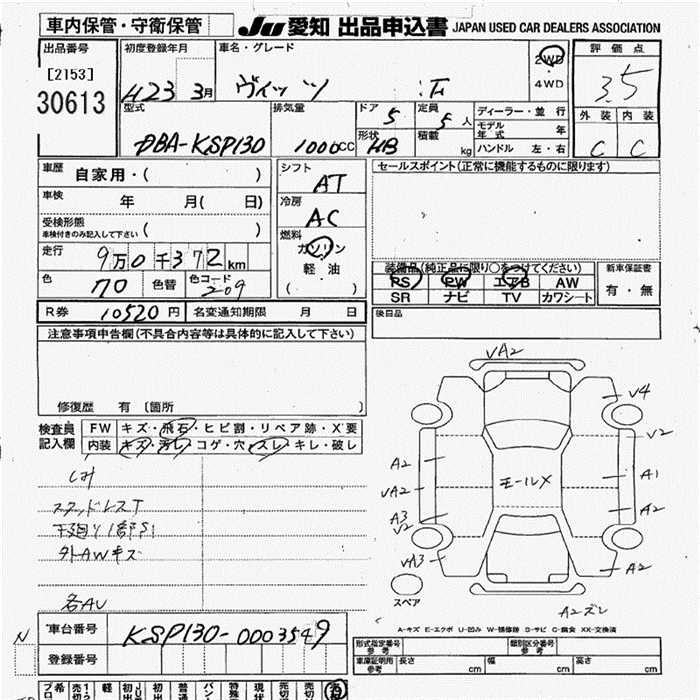 車内保管・守衛保管
JU 愛知 出品申込書 JAPAN USED CAR DEALERS ASSOCIATION
出品番号 初度登録年月 車名・グレード 2WD 評価点
[2153] H23 3月 ヴィッツ :F 4WD 3.5
30613
型式 排気量 ドア 5 定員 5人 ディーラー・並行 外装 内装
DBA-KSP130 1000CC 形状 HB 積載 kg モデル年式 年 C C
ハンドル 左・右
車歴 自家用・( ) シフト AT セールスポイント(正常に機能するものに限ります)
車検 年 月( 日) 冷房 AC
受検形態
車検付きのみ記入して下さい ( ) 燃料
走行 9万0千372km ガソリン
軽・油
( )
色 70 色替 色コード 209
装備品(純正品に限り○をつけてください) 新車保証書
PS PW エアB AW 有・無
SR ナビ TV カワシート
R券 10520円 名変通知期限 月 日 後日品
注意事項申告欄(不具合内容等は具体的に記入して下さい)
修復歴 有 〔箇所 〕
検査員記入欄 FW キズ・飛石・ヒビ割・リペア跡・X要
内装 キズ・汚レ・コゲ・穴・スレ・キレ・破レ
シミ
スタッドレスT
下廻り1部S1
外AWキズ
各AU
VA2
V4
V2
A2
VA2
A3
V2
VA3
モールX
A1
A2
A2
A2ズレ
スペア
A-キズ E-エクボ U-凹み W-補修跡 S-サビ C-腐食 XX-交換済
車台番号 KSP130-0003549
登録番号
N
形式指定番号 参考 類別区分番号 参考
車庫証明用 参考 長さ cm 幅 cm 高さ cm